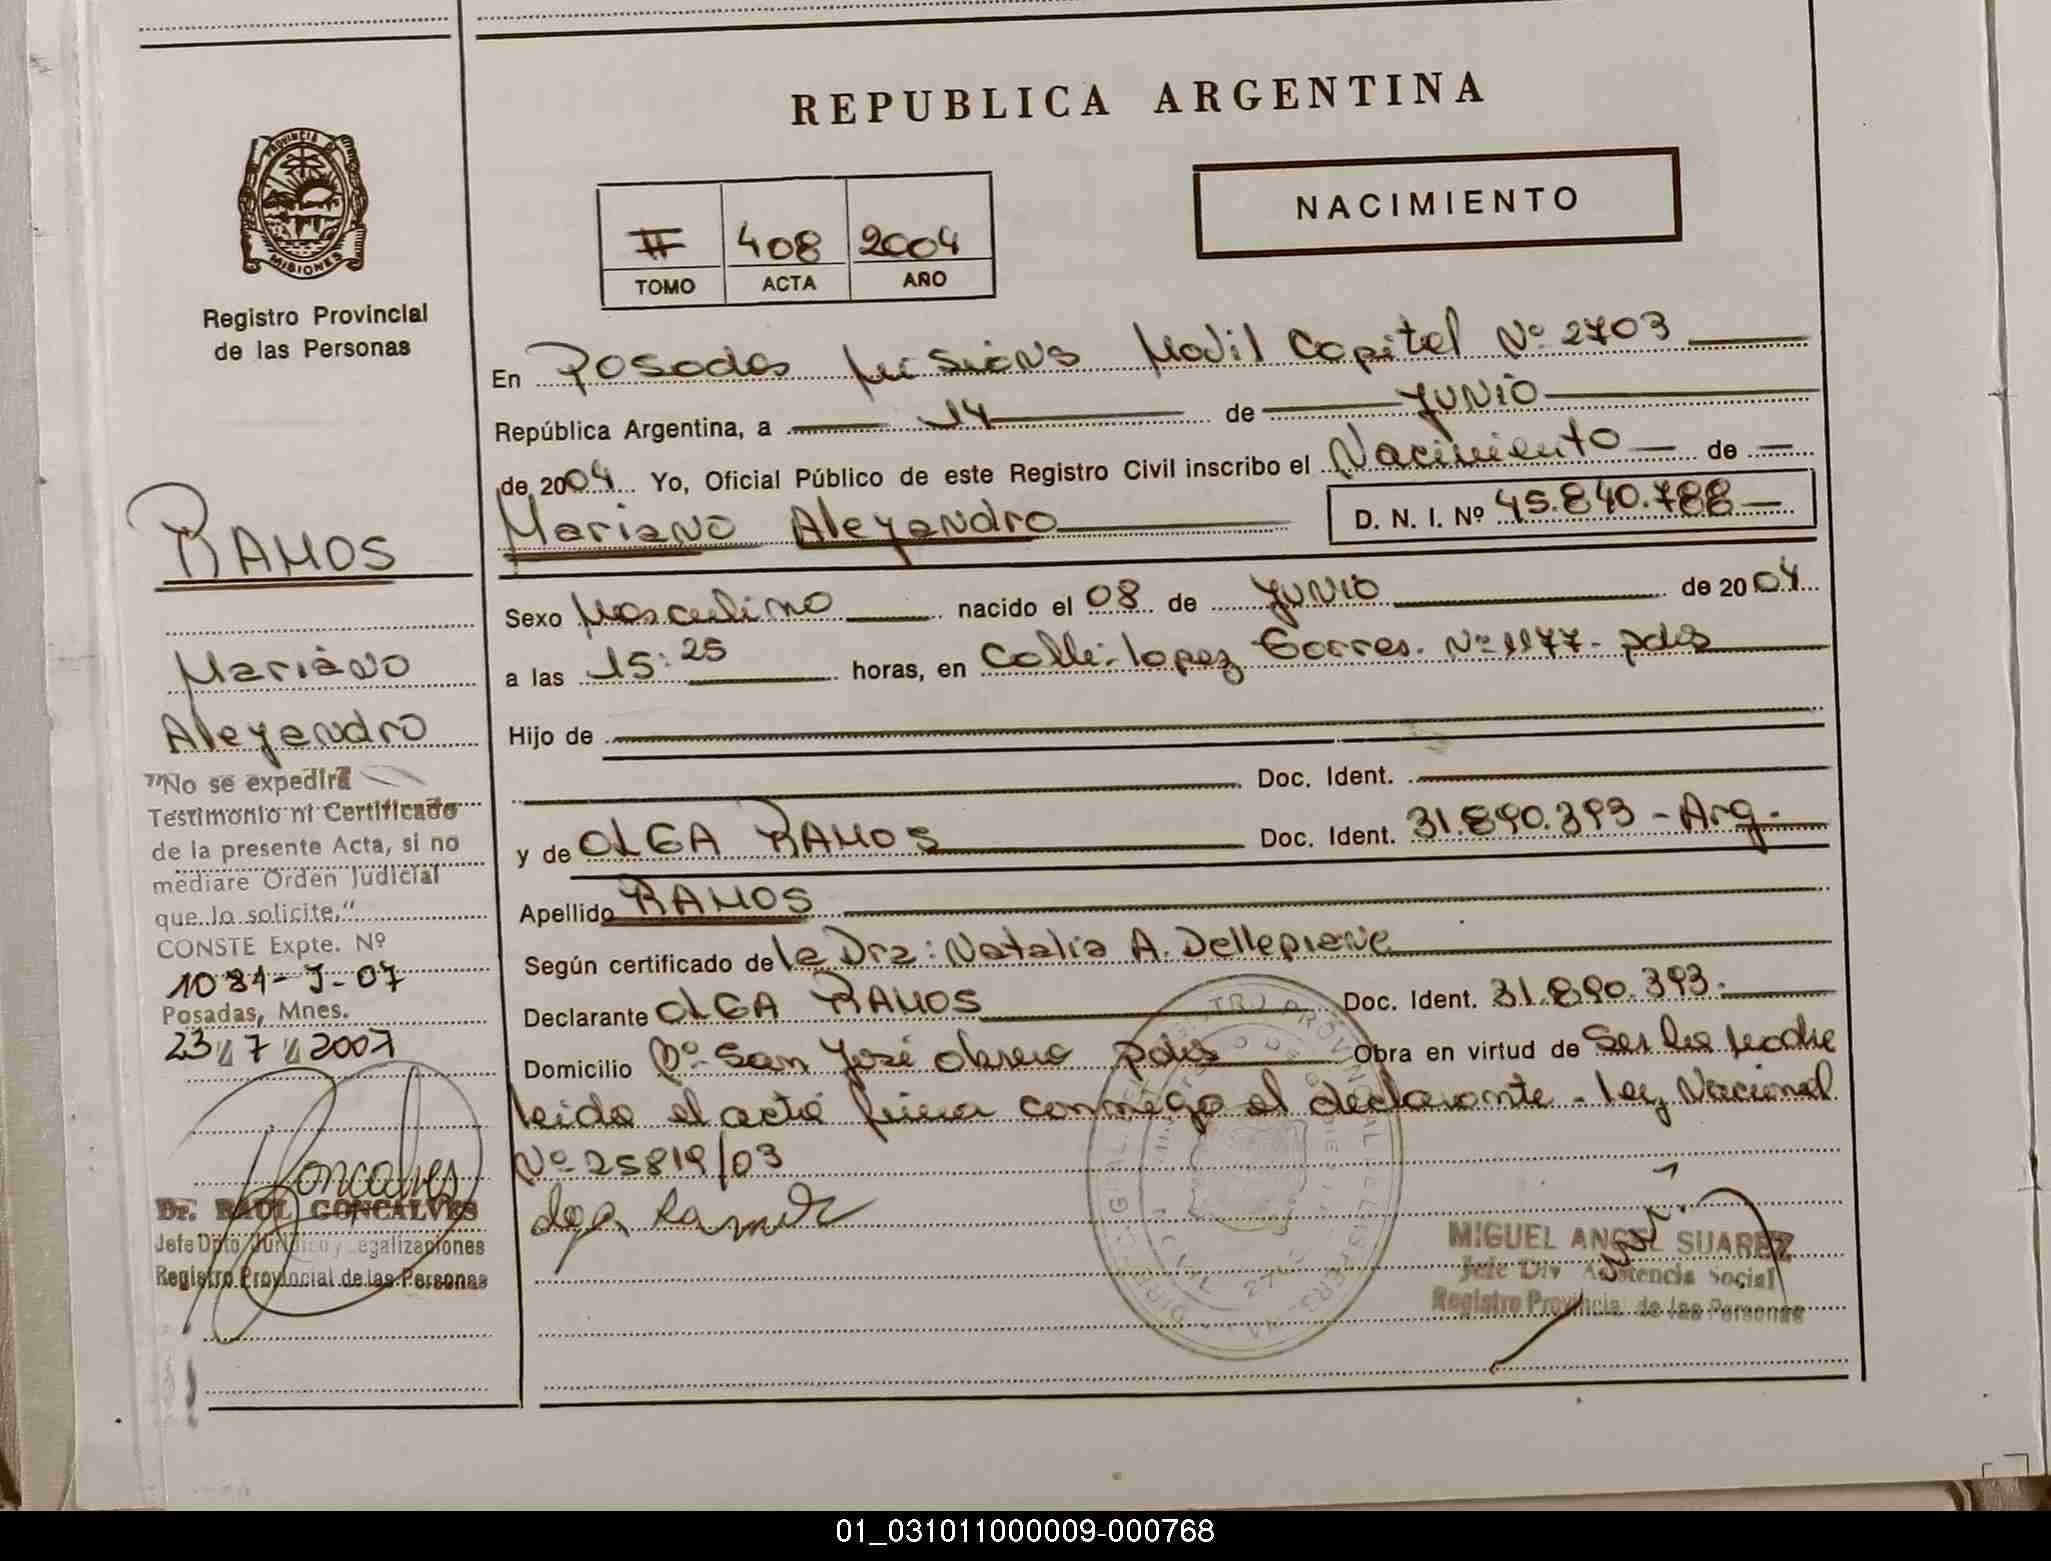 REPUBLICA ARGENTINA
PROVINCIA DE
MISIONES
Registro Provincial
de las Personas
NACIMIENTO
II 408 2004
TOMO ACTA AÑO
En Posadas Misiones Movil Capital Nº 2703
República Argentina, a 14 de Junio
de 2004 Yo, Oficial Público de este Registro Civil inscribo el Nacimiento de
Mariano Alejandro D. N. I. Nº 45.840.788
Sexo Masculino nacido el 08 de Junio de 2004
a las 15:25 horas, en Calle: Lopez Torres. Nº 1177- pdas
Hijo de
Doc. Ident.
y de OLGA RAMOS Doc. Ident. 31.890.393 - Arg.
Apellido RAMOS
Según certificado de la Dra: Natalia A. Dellepiane
Declarante OLGA RAMOS Doc. Ident. 31.890.393.
Domicilio Bº San José obrero pdas Obra en virtud de Ser la Madre
leida el acta firma conmigo el declarante - Ley Nacional
Nº 25819/03
Olga Ramos
MIGUEL ANGEL SUAREZ
Jefe Div Asistencia Social
Registro Provincial de las Personas
RAMOS
Mariano
Alejandro
"No se expedirá
Testimonio ni Certificado
de la presente Acta, si no
mediare Orden Judicial
que lo solicite."
CONSTE Expte. Nº
1081-J-07
Posadas, Mnes.
23/7/2007
Goncalves
Dr. RAUL GONCALVES
Jefe Dpto. Jurídico y Legalizaciones
Registro Provincial de las Personas
01_031011000009-000768